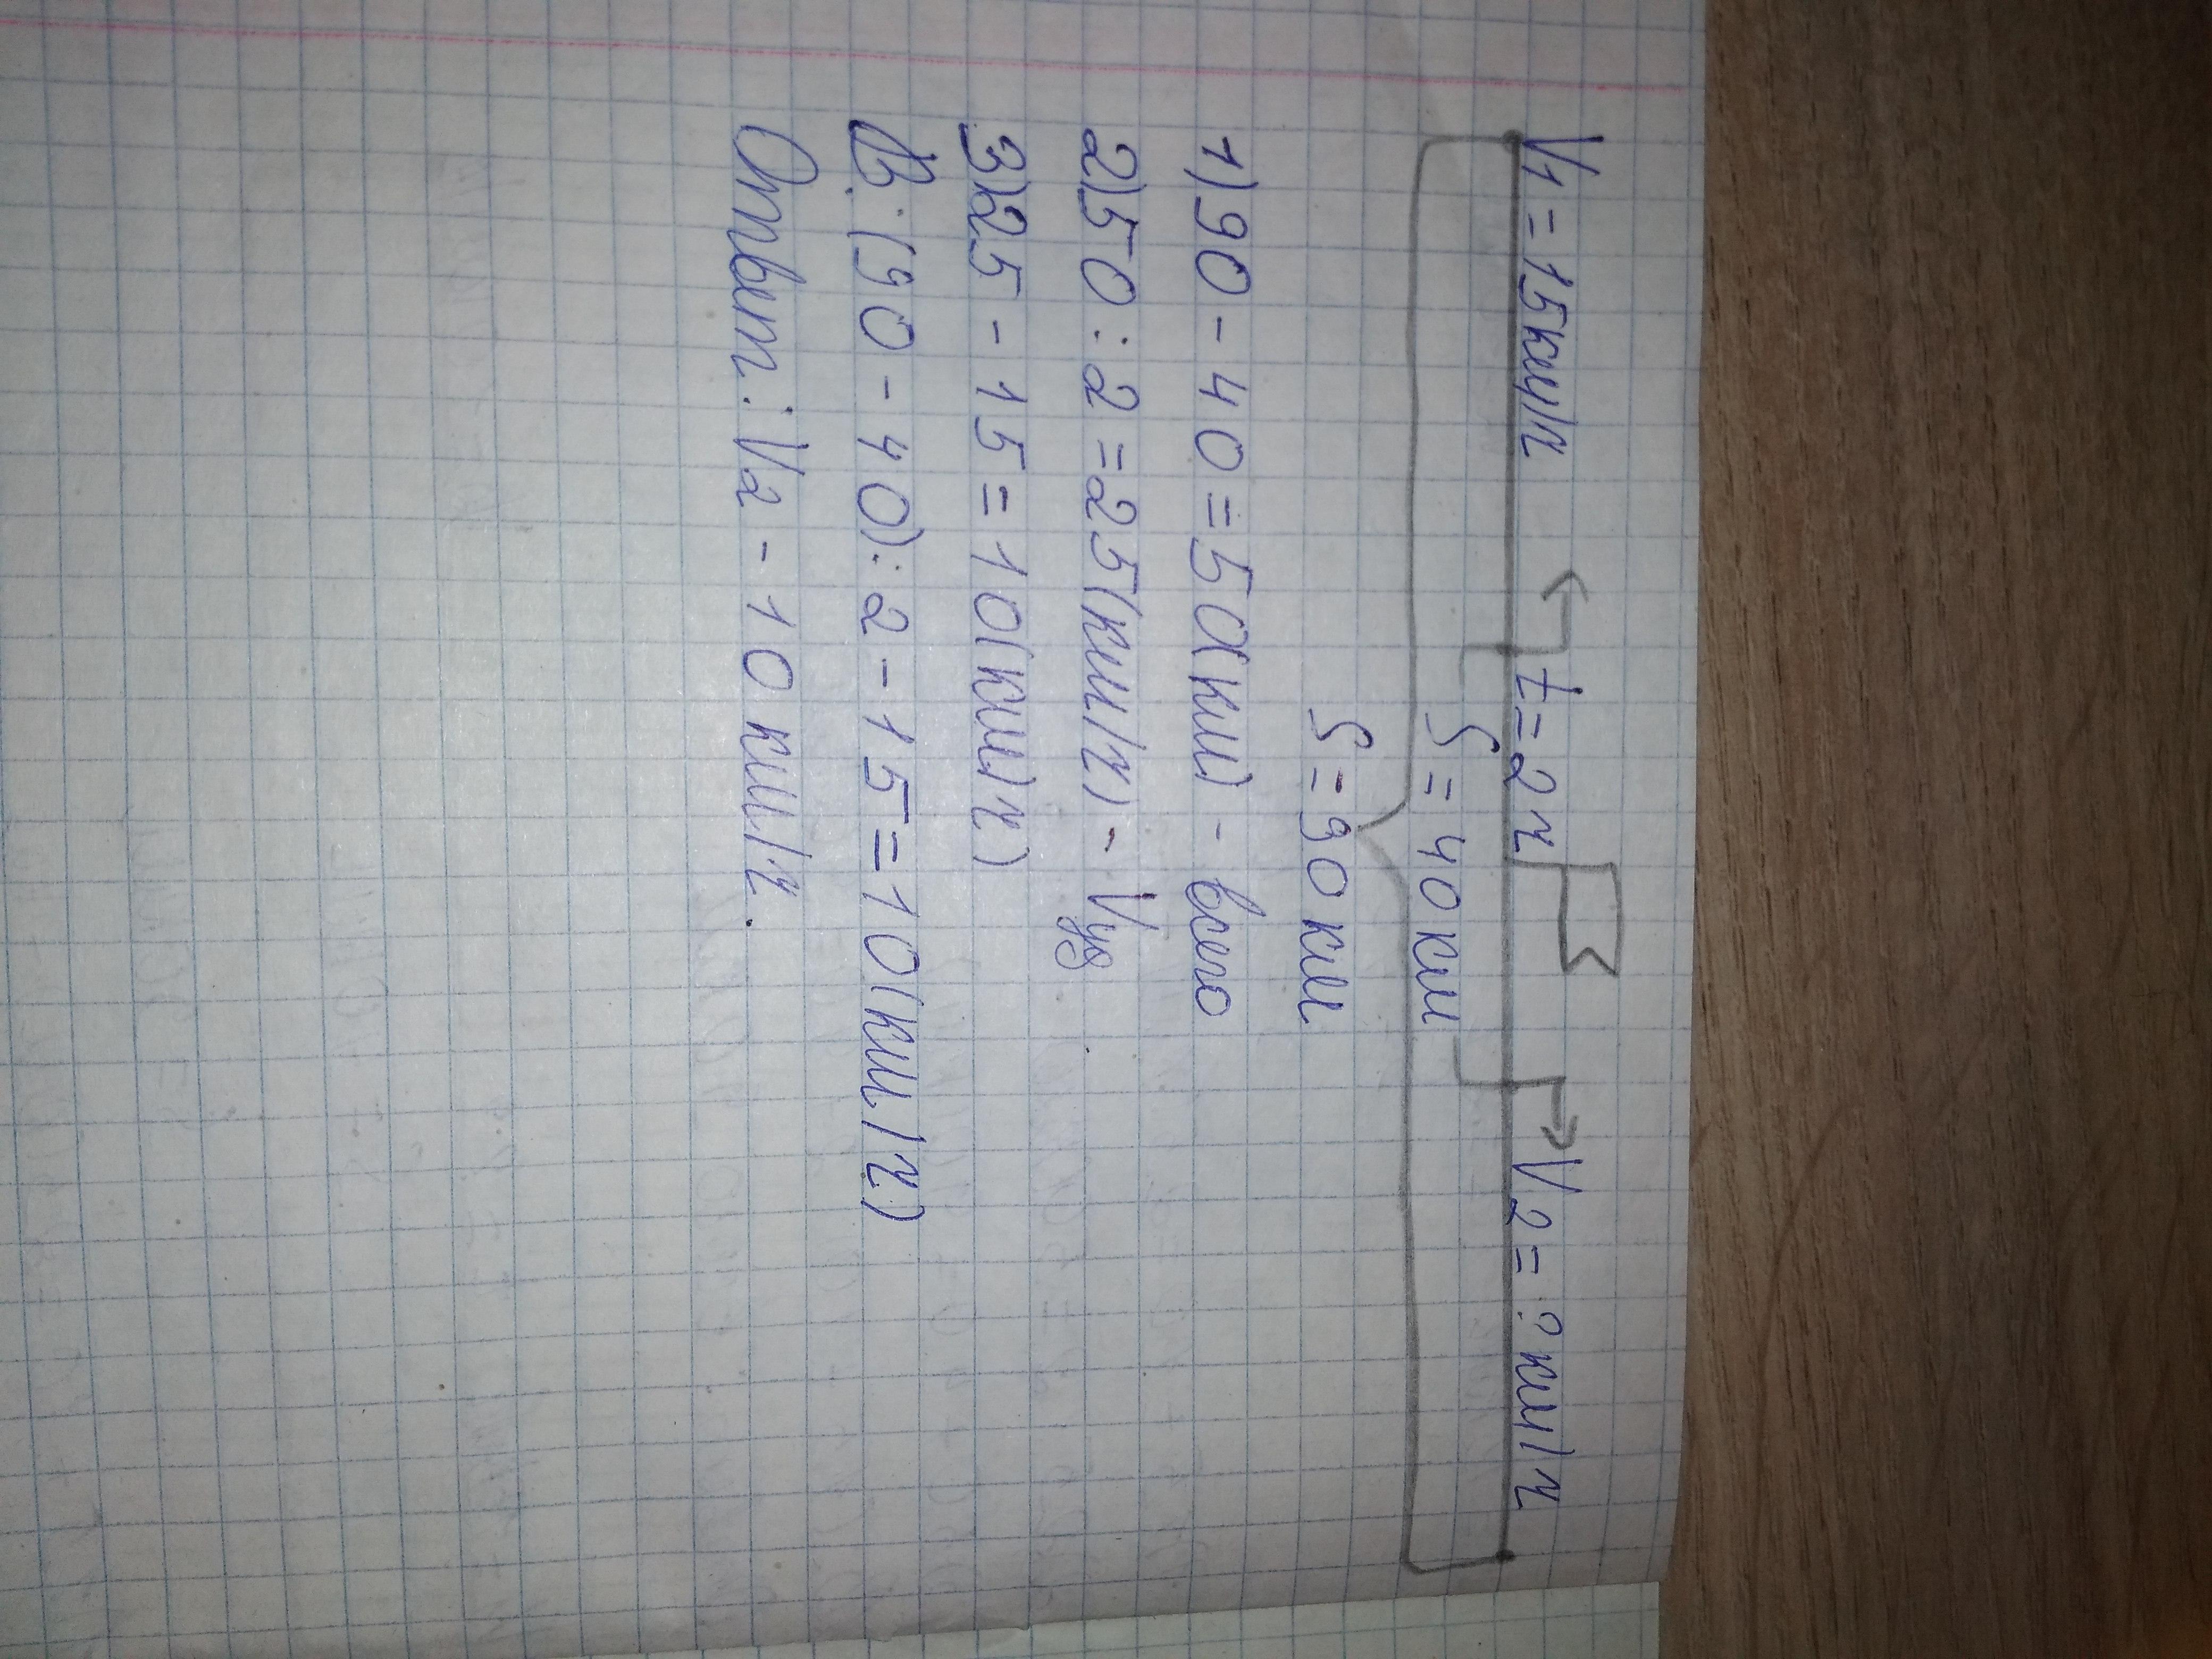 V1 = 15км/ч t = 2ч V2 = ? км/ч
S = 40 км
S = 90 км
1) 90 - 40 = 50(км) - всего
2) 50 : 2 = 25(км/ч) - Vуд
3) 25 - 15 = 10(км/ч)
В: (90 - 40) : 2 - 15 = 10(км/ч)
Ответ: V2 - 10 км/ч.